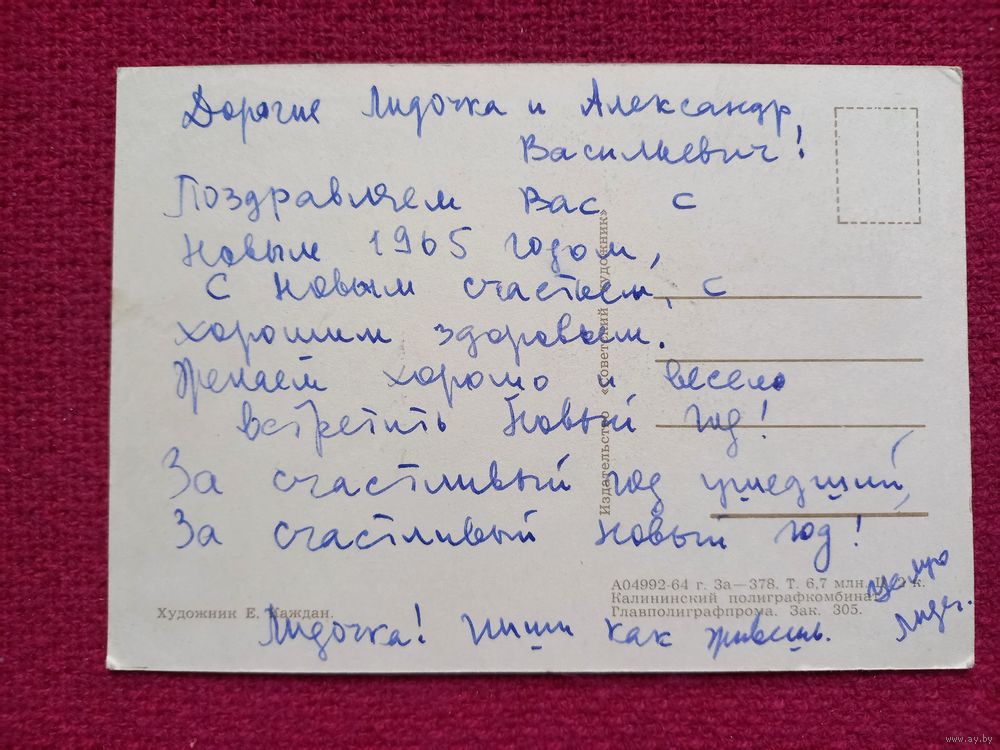 Дорогие Лидочка и Александр
Васильевич!
Поздравляем Вас с
Новым 1965 годом,
С новым счастьем, с
хорошим здоровьем.
Желаем хорошо и весело
встретить Новый год!
За счастливый год ушедший,
За счастливый новый год!
Лидочка! Пиши как живешь.
Издательство «Советский художник»
А04992-64 г. За—378. Т. 6,7 млн. Ц. 2 к.
Калининский полиграфкомбинат
Главполиграфпрома. Зак. 305.
Художник Е. Каждан.
www.ay.by